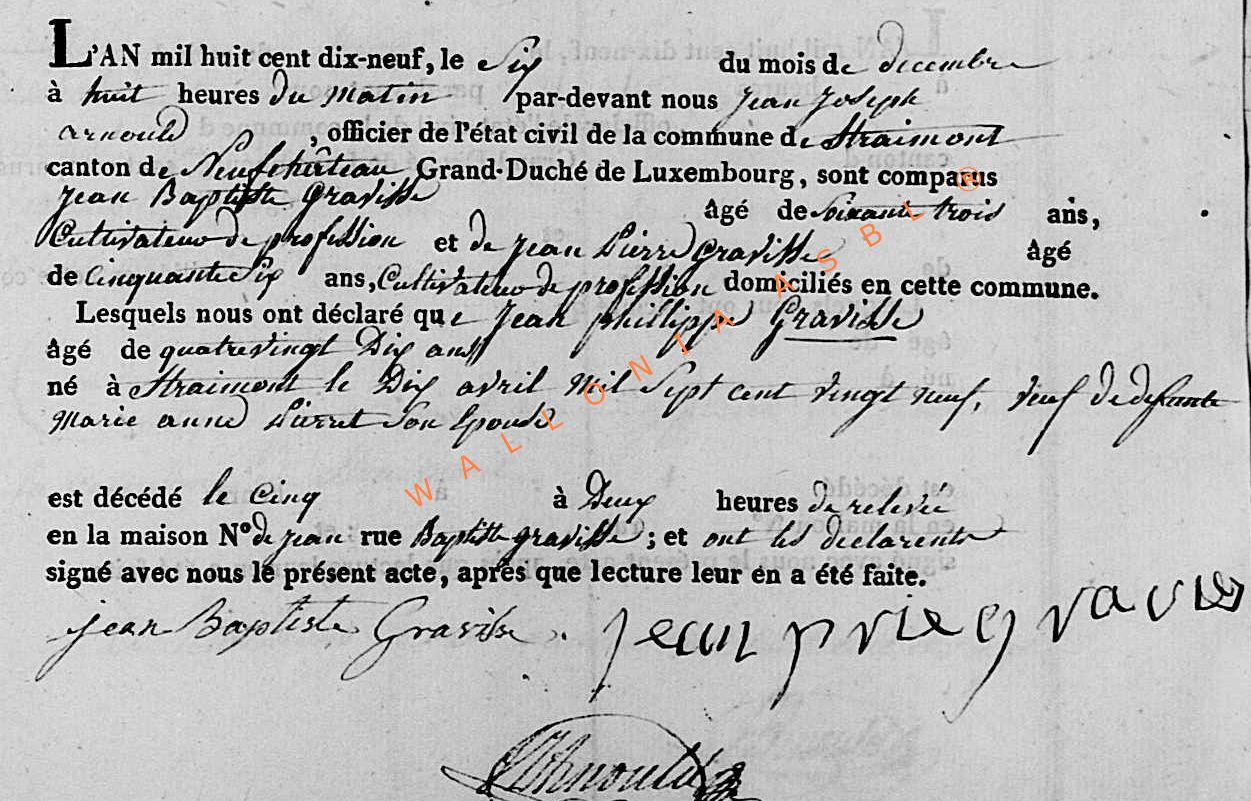 L'AN mil huit cent dix-neuf, le Six du mois de decembre
à huit heures du Matin par-devant nous Jean Joseph
arnould, officier de l'état civil de la commune de Straimont
canton de Neufchâteau Grand-Duché de Luxembourg, sont comparus
Jean Baptiste Gravisse âgé de soixante trois ans,
Cultivateur de profession et de Jean Pierre Gravisse âgé
de cinquante Six ans, Cultivateur de profession domiciliés en cette commune.
Lesquels nous ont déclaré que Jean phillippe Gravisse
âgé de quatrevingt Dix ans
né à Straimont le Dix avril Mil Sept cent vingt neuf, veuf de defunte
Marie anne Pierret Son Epouse
est décédé le Cinq à Deux heures de relevée
en la maison N° de jean rue Baptiste gravisse; et ont les declarents
signé avec nous le présent acte, après que lecture leur en a été faite.
jean Baptiste Gravisse. jean prie gravise
JJArnould
WALLONIA ASBL ®